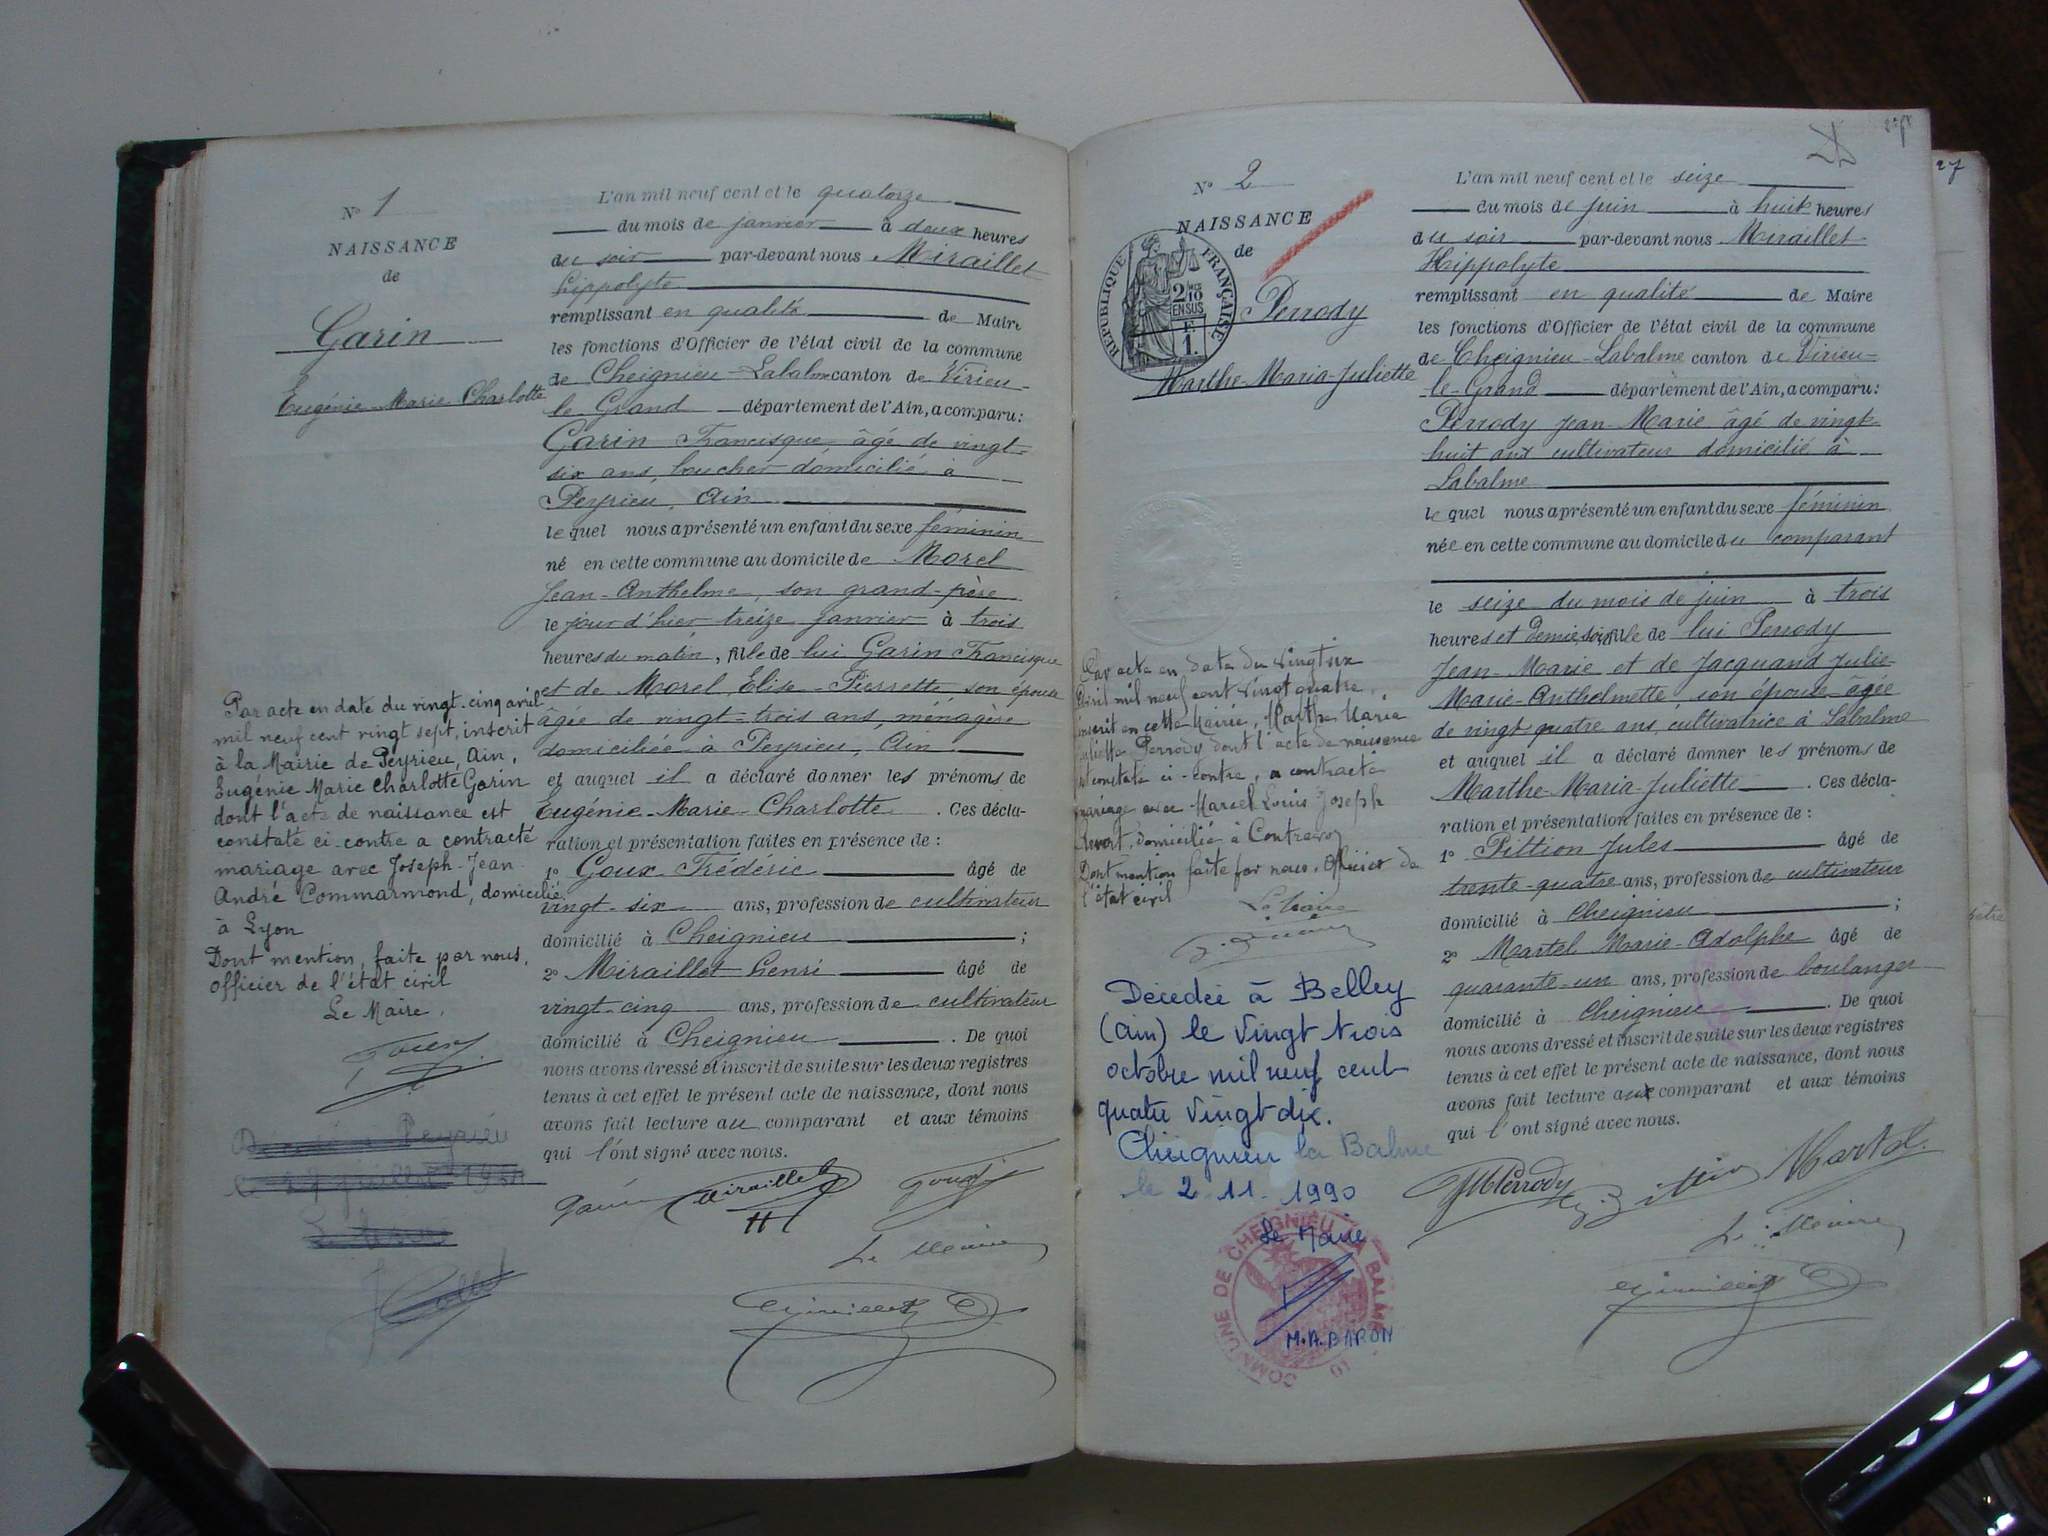 N° 1
NAISSANCE
de
Garin
Eugénie-Marie-Charlotte
L'an mil neuf cent et le quatorze
du mois de janvier à deux heures
du soir par-devant nous Miraillet
hippolyte
remplissant en qualité de Maire
les fonctions d'Officier de l'état civil de la commune
de Cheignieu-Labalme canton de Virieu-
le-Grand département de l'Ain, a comparu:
Garin Francisque âgé de vingt-
six ans, boucher domicilié à
Peyrieu, Ain
lequel nous a présenté un enfant du sexe féminin
né en cette commune au domicile de Morel
Jean-Anthelme, son grand-père
le jour d'hier treize janvier à trois
heures du matin, fille de lui Garin Francisque
et de Morel, Elise-Pierrette son épouse
âgée de vingt-trois ans, ménagère
domiciliée à Peyrieu, Ain.
et auquel il a déclaré donner les prénoms de
Eugénie-Marie-Charlotte. Ces décla-
ration et présentation faites en présence de :
1° Goux Frédéric âgé de
vingt-six ans, profession de cultivateur
domicilié à Cheignieu ;
2° Miraillet henri âgé de
vingt-cinq ans, profession de cultivateur
domicilié à Cheignieu. De quoi
nous avons dressé et inscrit de suite sur les deux registres
tenus à cet effet le présent acte de naissance, dont nous
avons fait lecture au comparant et aux témoins
qui l'ont signé avec nous.
Garin Miraillet
H
Le Maire
Par acte en date du vingt-cinq avril
mil neuf cent vingt sept, inscrit
à la Mairie de Peyrieu, Ain,
Eugénie Marie Charlotte Garin
dont l'acte de naissance est
constaté ci-contre a contracté
mariage avec Joseph-Jean-
André Commarmond, domicilié
à Lyon
Dont mention, faite par nous,
officier de l'état civil
Le Maire,
à Peyrieu
le 27 juillet
Le Maire
N° 2
NAISSANCE
de
RÉPUBLIQUE FRANÇAISE
2/10
EN SUS
F.
1.
Perrody
Marthe-Maria-Juliette
L'an mil neuf cent et le seize
du mois de juin à huit heures
du soir par-devant nous Miraillet
Hippolyte
remplissant en qualité de Maire
les fonctions d'Officier de l'état civil de la commune
de Cheignieu-Labalme canton de Virieu-
le-Grand département de l'Ain, a comparu:
Perrody Jean-Marie âgé de vingt-
huit ans cultivateur domicilié à
Labalme
lequel nous a présenté un enfant du sexe féminin
née en cette commune au domicile du comparant
le seize du mois de juin à trois
heures et demie soir, fille de lui Perrody
Jean-Marie et de Jacquand Julie-
Marie-Anthelmette, son épouse âgée
de vingt quatre ans, cultivatrice à Labalme
et auquel il a déclaré donner les prénoms de
Marthe-Maria-Juliette. Ces décla-
ration et présentation faites en présence de :
1° Pittion Jules âgé de
trente-quatre ans, profession de cultivateur
domicilié à Cheignieu ;
2° Martel Marie-Adolphe âgé de
quarante-un ans, profession de boulanger
domicilié à Cheignieu. De quoi
nous avons dressé et inscrit de suite sur les deux registres
tenus à cet effet le présent acte de naissance, dont nous
avons fait lecture aux comparant et aux témoins
qui l'ont signé avec nous.
JM Perrody Pittion Martel
Le Maire
Par acte en date du vingt six
avril mil neuf cent vingt quatre,
inscrit en cette Mairie, Marthe Maria
Juliette Perrody dont l'acte de naissance
est constaté ci-contre, a contracté
mariage avec Marcel Louis Joseph
domicilié à Contrevoz
Dont mention faite par nous, Officier de
l'état civil
Le Maire
Décédée à Belley
(Ain) le vingt trois
octobre mil neuf cent
quatre vingt dix.
Cheignieu la Balme
le 2 11 1990
Le Maire
COMMUNE DE CHEIGNIEU LA BALME
M.A. BARON
27